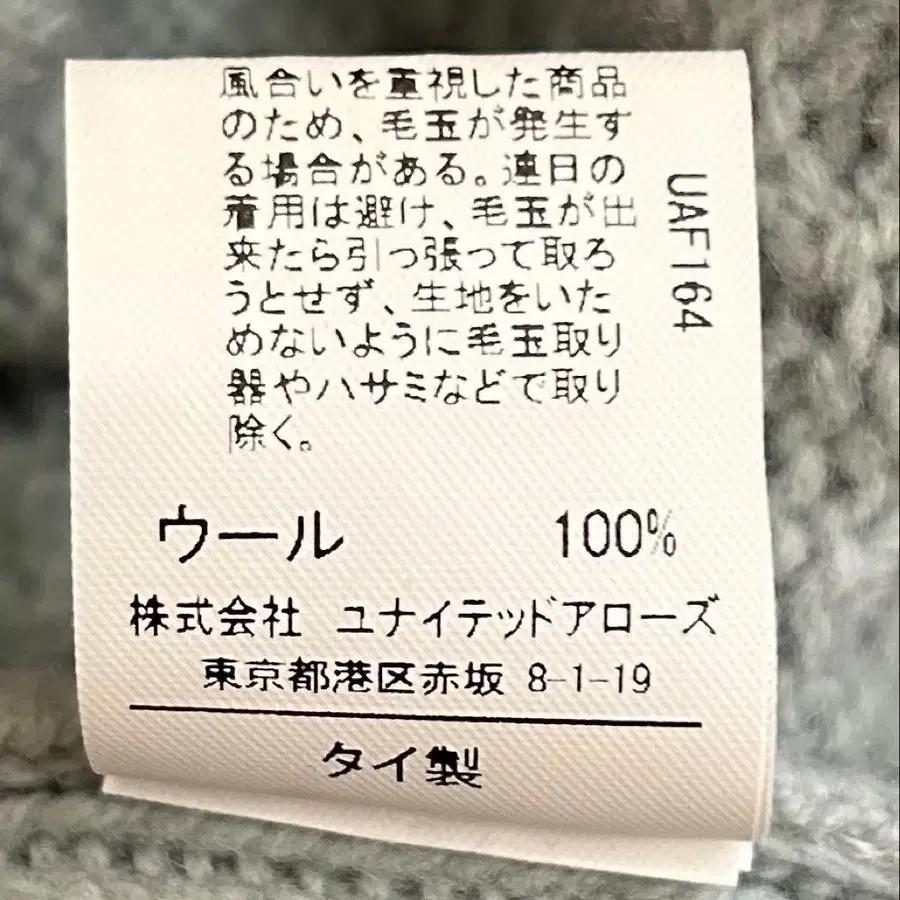 風合いを重視した商品
のため、毛玉が発生す
る場合がある。連日の
着用は避け、毛玉が出
来たら引っ張って取ろ
うとせず、生地をいた
めないように毛玉取り
器やハサミなどで取り
除く。
UAF164
ウール 100%
株式会社 ユナイテッドアローズ
東京都港区赤坂 8-1-19
タイ製